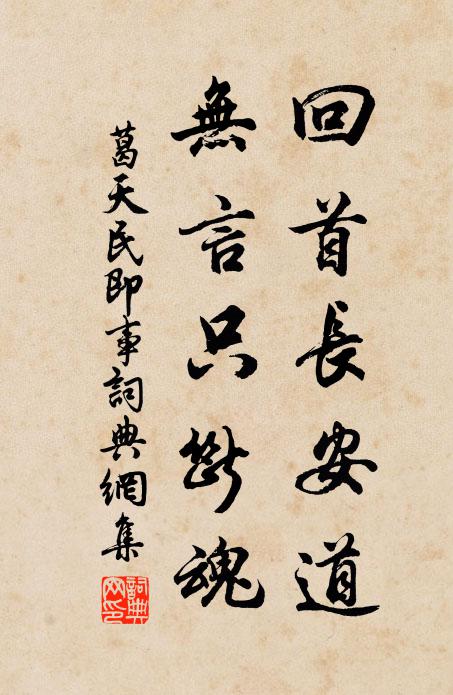 回首長安道
無言只斷魂
葛天民即事詞典網集
詞典網印